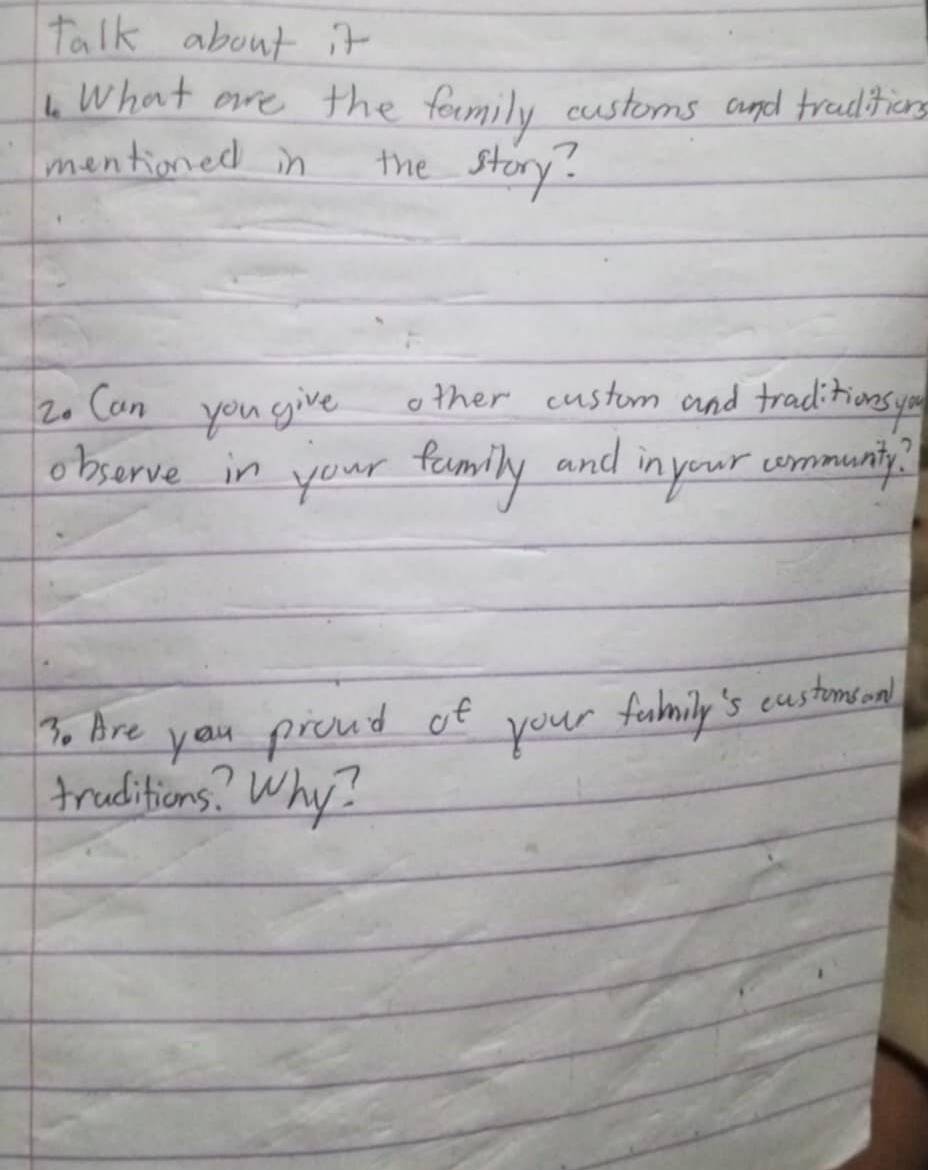 Talk about it
1. What are the family customs and traditions
mentioned in the story?
2. Can you give other custom and traditions you
observe in your family and in your community?
3. Are you proud of your family's customs and
traditions? Why?